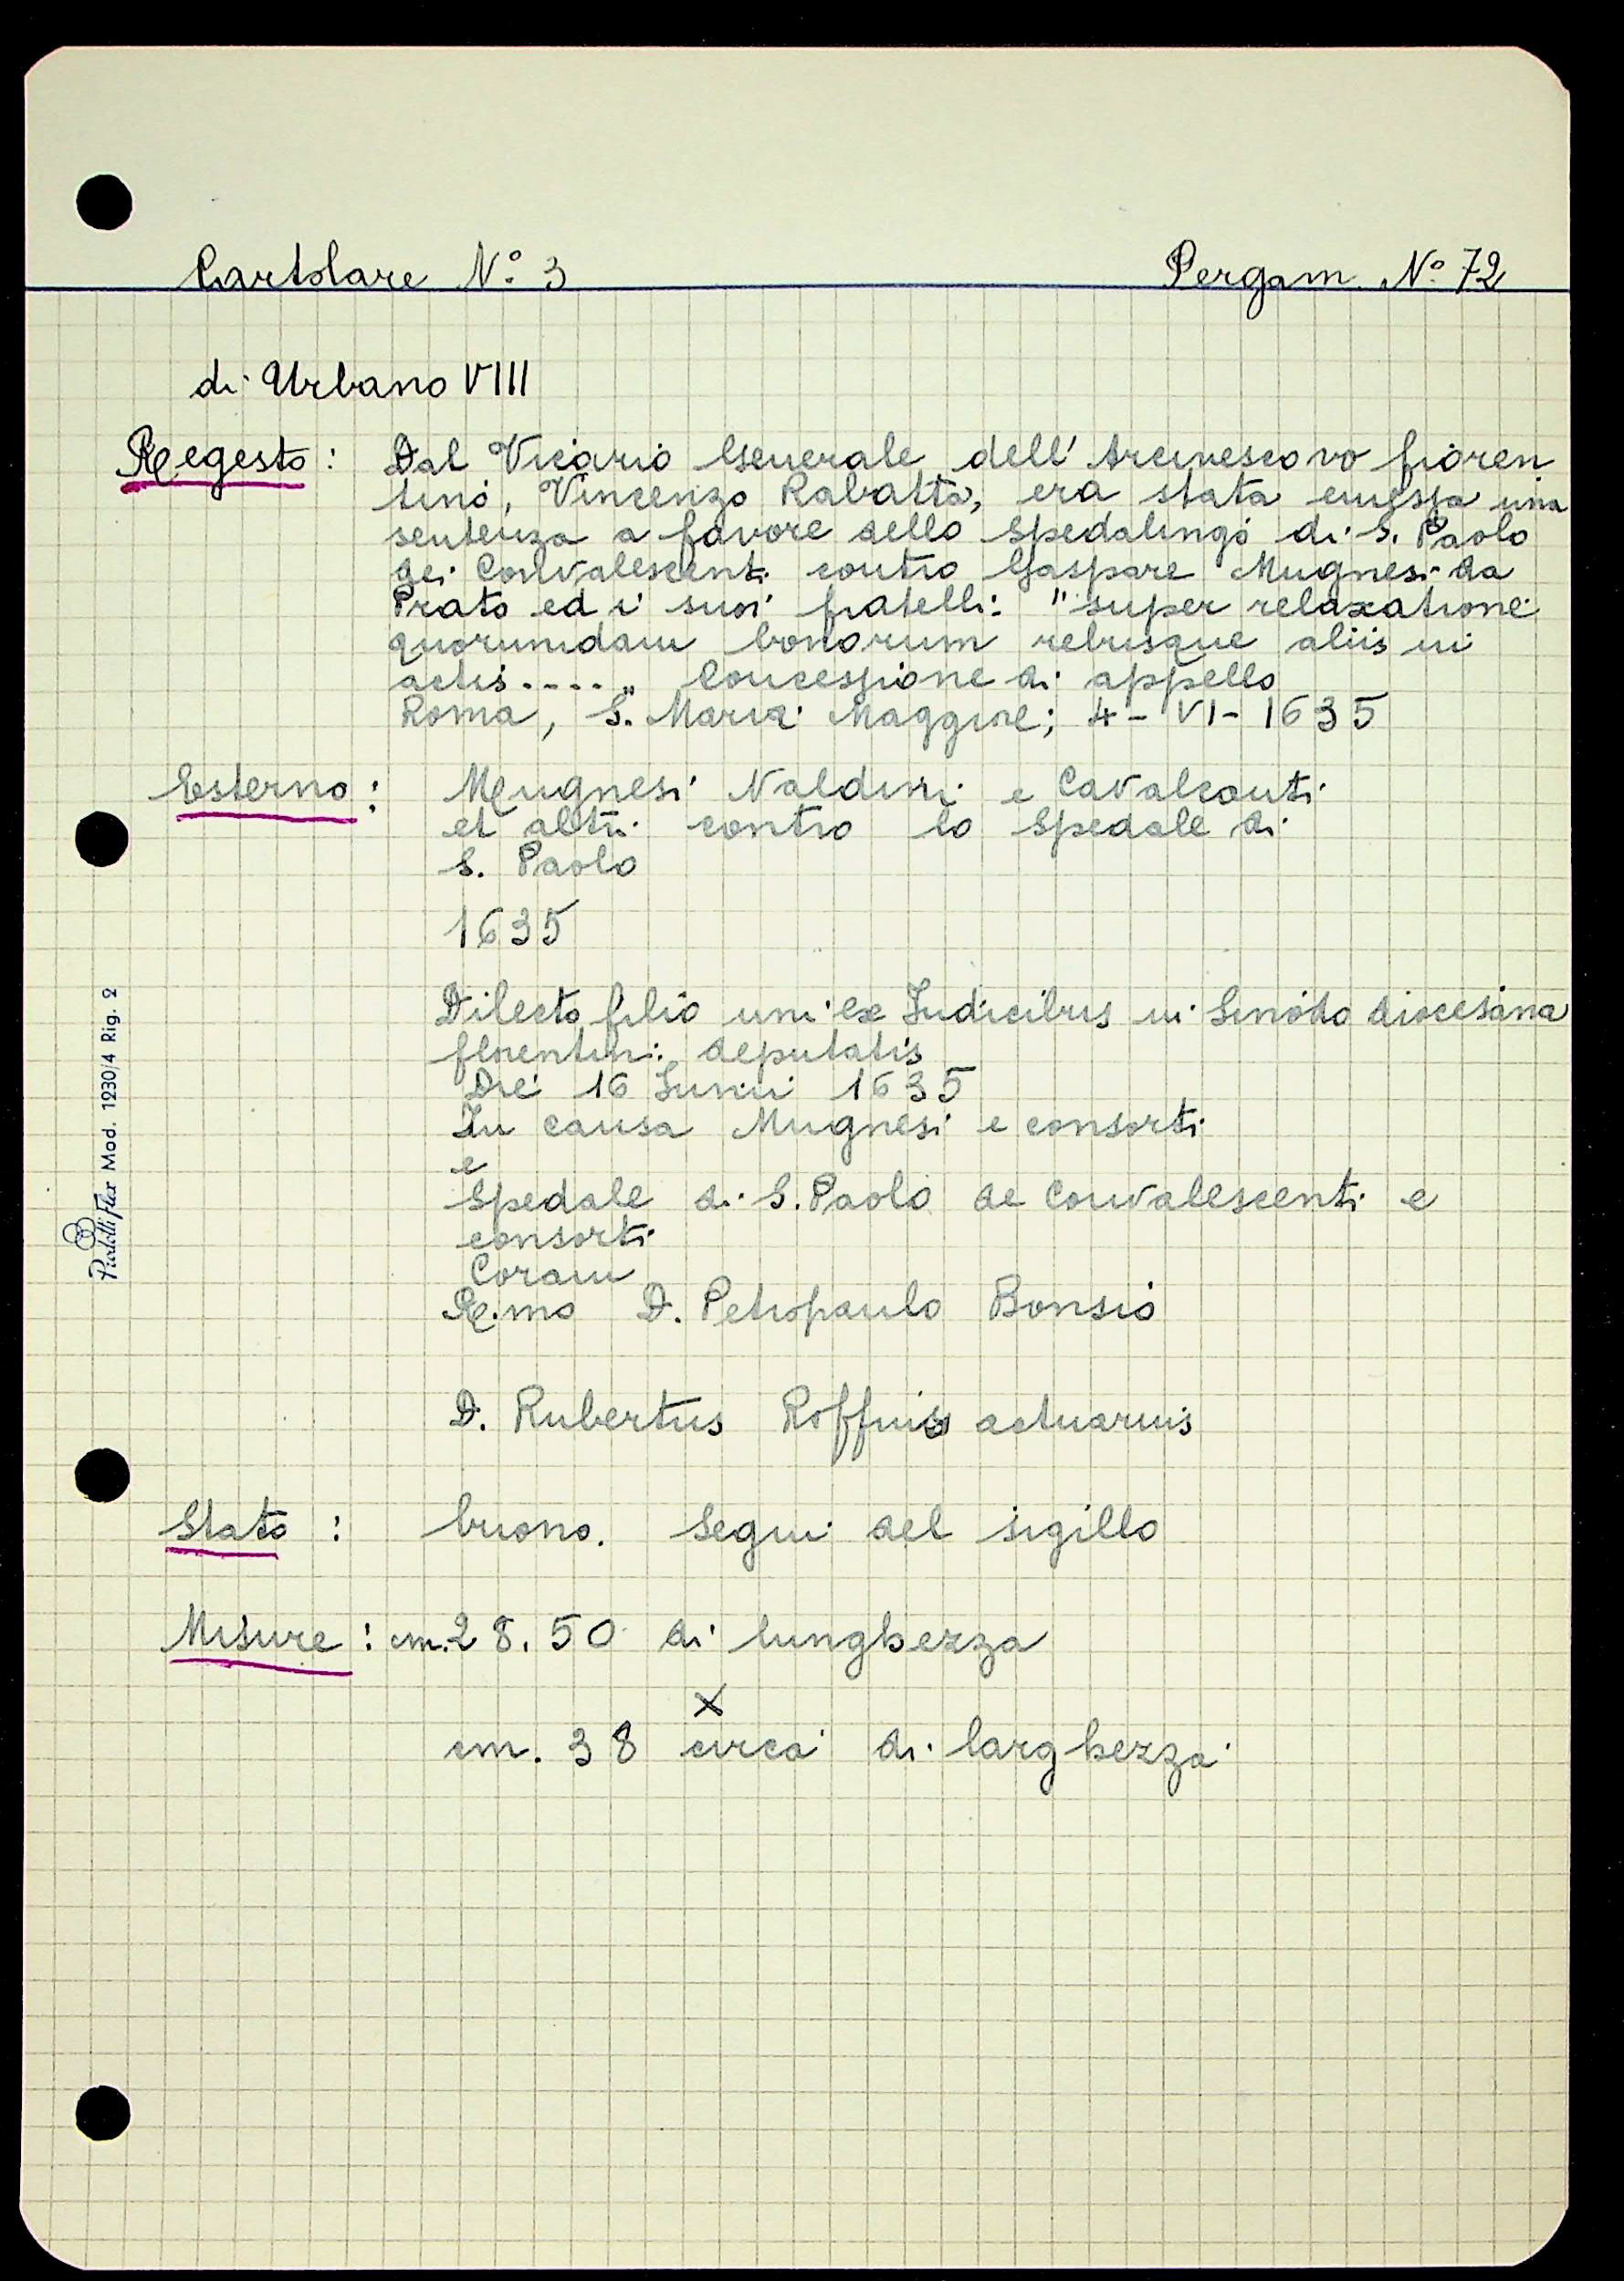 Cartolare N° 3
Pergam. N° 72
di Urbano VIII
Regesto: Dal Vicario Generale dell' Arcivescovo fioren
tino, Vincenzo Rabatta, era stata emessa una
sentenza a favore dello Spedalingo di S. Paolo
dei Convalescenti contro Gaspare Mugnesi da
Prato ed i suoi fratelli: "super relaxatione
quorumdam bonorum rebusque aliis in
actis...." Concessione di appello
Roma, S. Maria Maggiore; 4-VI-1635
Esterno: Mugnesi Naldini e Cavalcanti
et altri contro lo Spedale di
S. Paolo
1635
Dilecto filio uni ex Iudicibus in Sinodo diocesana
florentin: deputatis
Die 16 Junii 1635
In causa Mugnesi e consorti
e
Spedale di S. Paolo de Convalescenti e
consorti
Coram
R.mo D. Petropaulo Bonsio
D. Rubertus actuarius
Stato: buono. Segni del sigillo
Misure: cm. 28.50 di lunghezza
x
cm. 38 circa di larghezza
Pratelli Flex Mod. 1230/4 Rig. 2